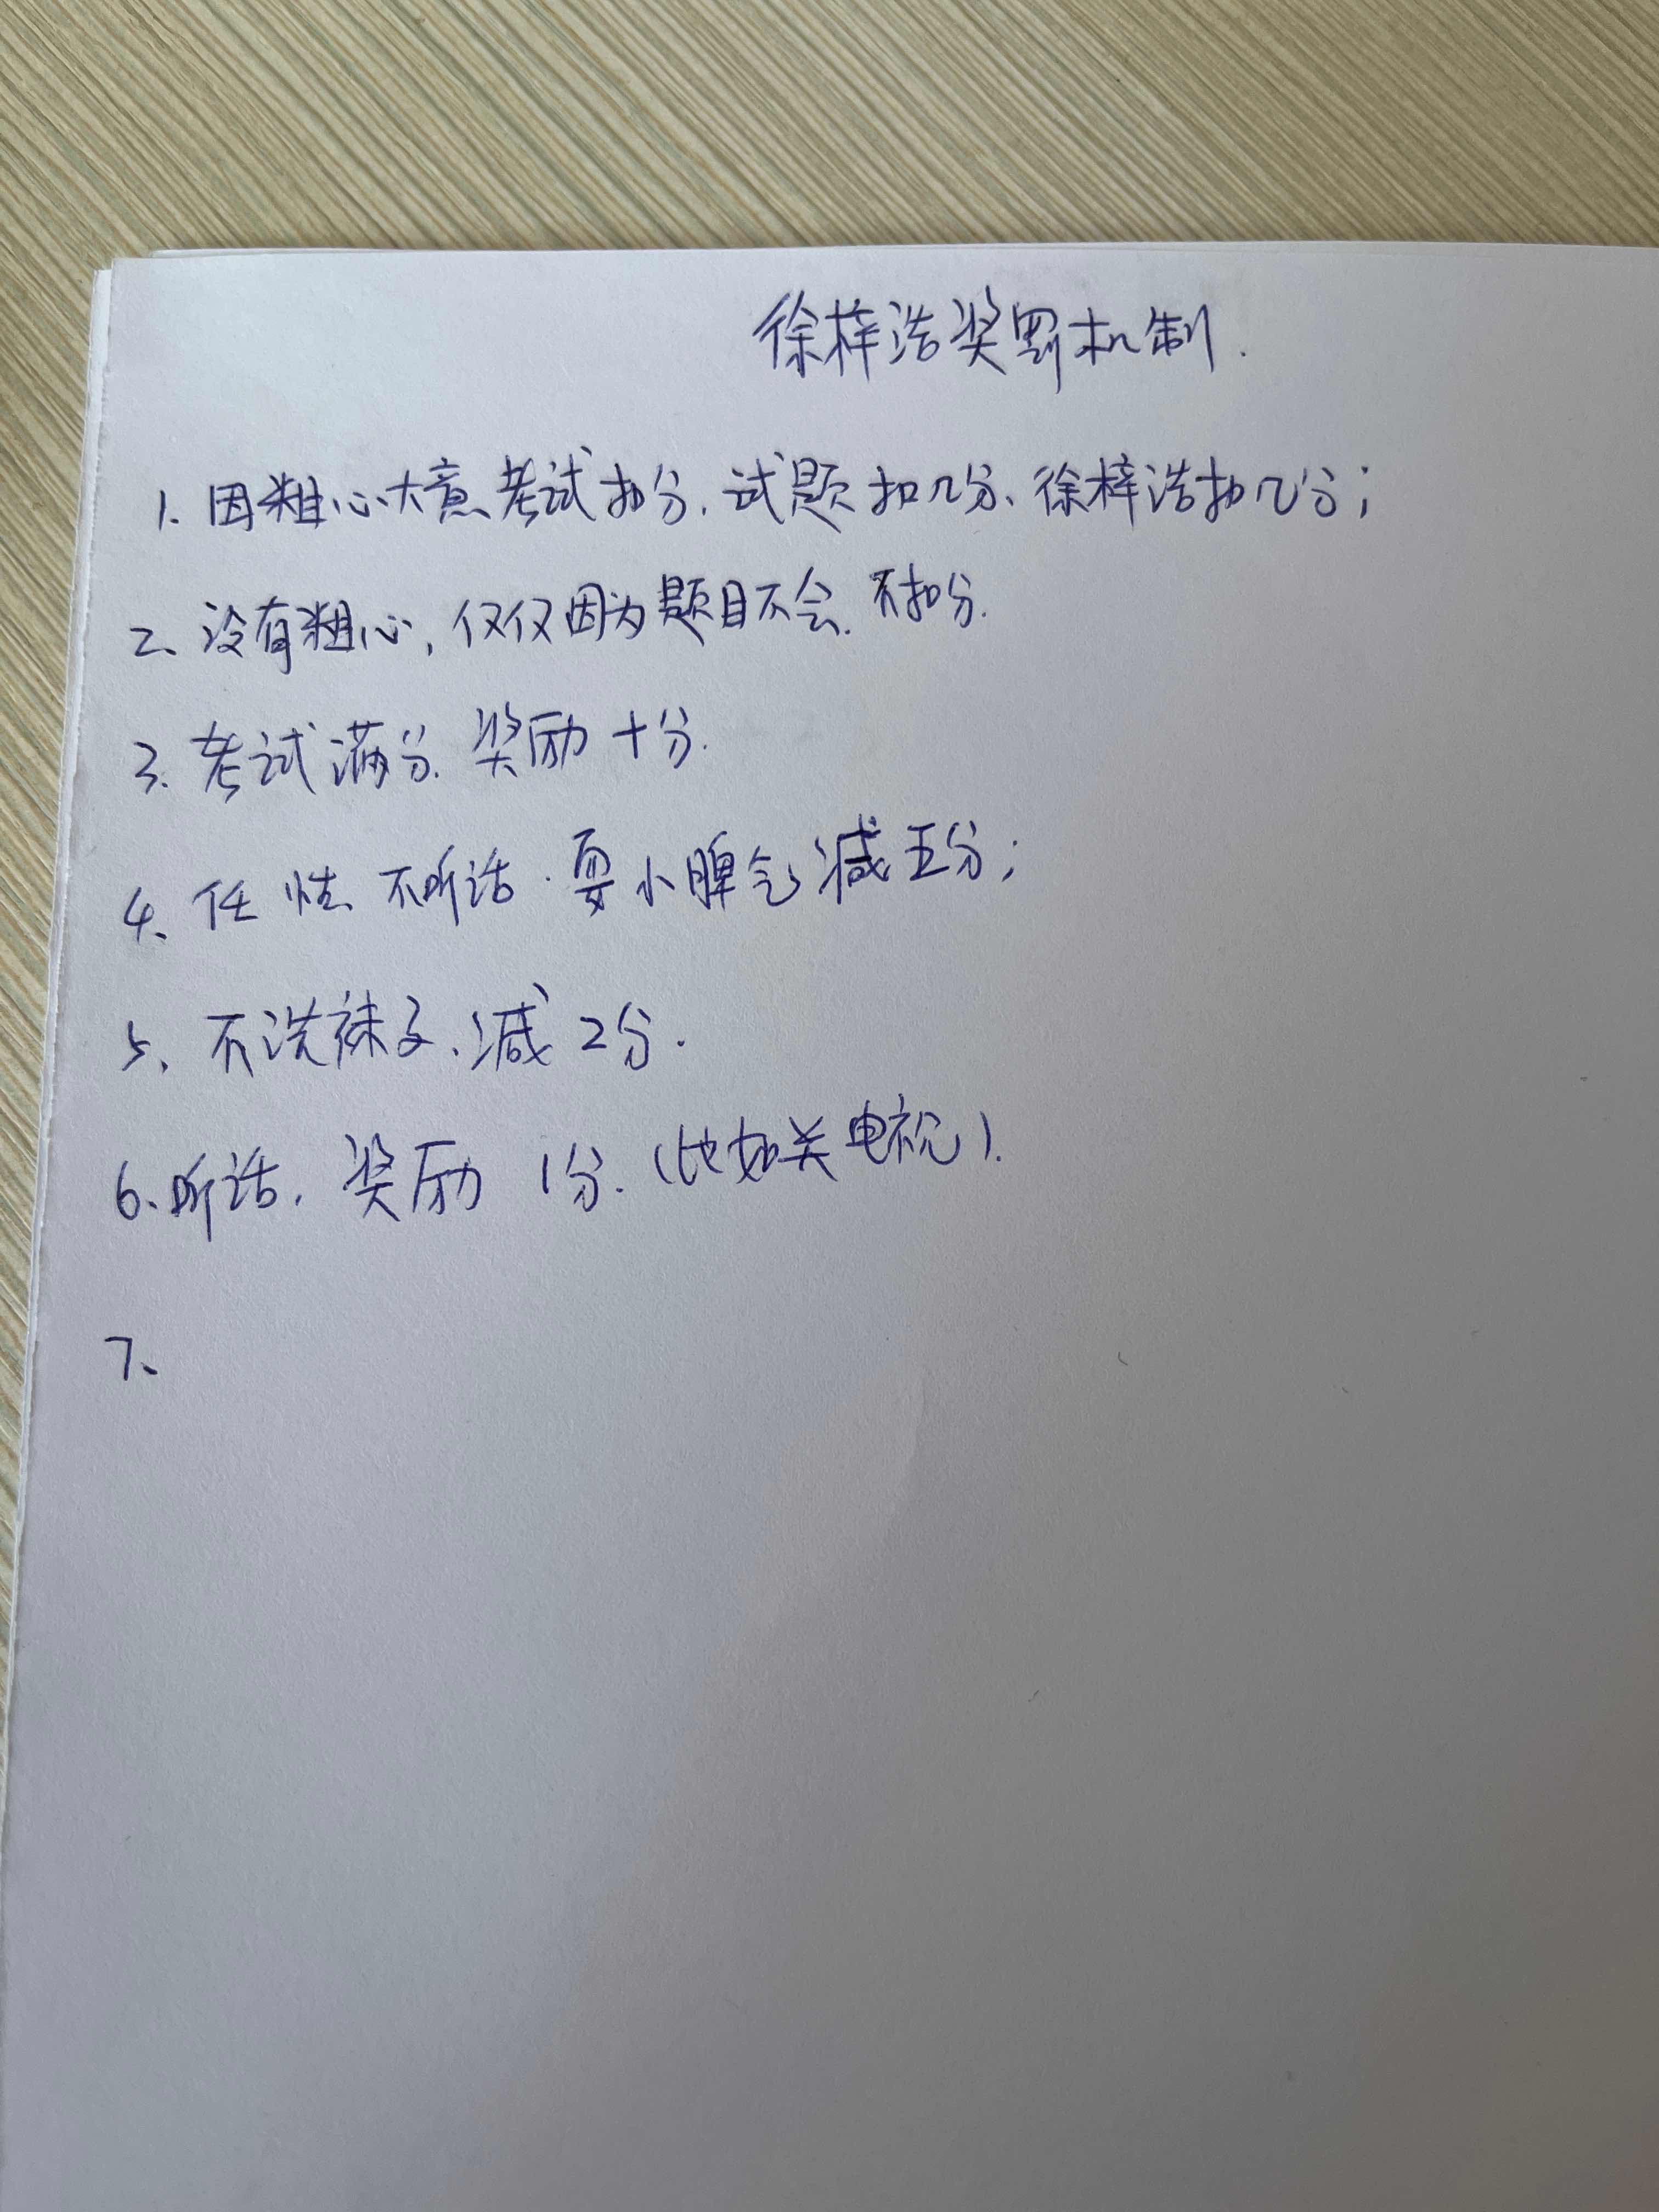 徐梓浩奖罚机制.
1. 因粗心大意考试扣分, 试题扣几分、徐梓浩扣几分;
2、没有粗心, 仅仅因为题目不会、不扣分.
3. 考试满分、奖励十分.
4、任性、不听话. 耍小脾气减五分;
5、不洗袜子、减2分.
6、听话. 奖励1分. (比如关电视).
7、